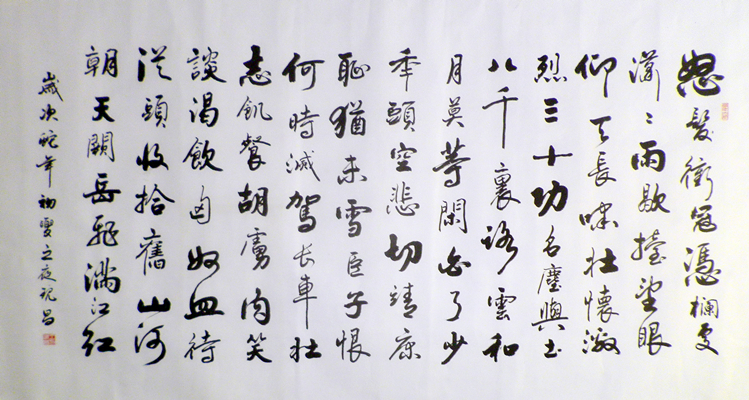 怒髮衝冠憑欄處
瀟〻雨歇擡望眼
仰天長嘯壯懷激
烈三十功名塵與土
八千裏路雲和
月莫等閑白了少
年頭空悲切靖康
恥猶未雪臣子恨
何時滅駕长車壯
志飢餐胡虜肉笑
談渴飲匈奴血待
從頭收拾舊山河
朝天闕岳飛滿江紅
歲次蛇年初之夜昌